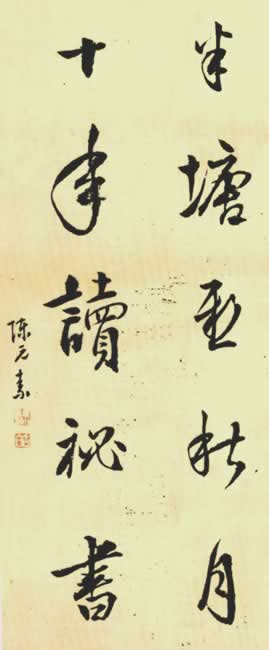 半塘秋月
十年讀祕書
陳元素